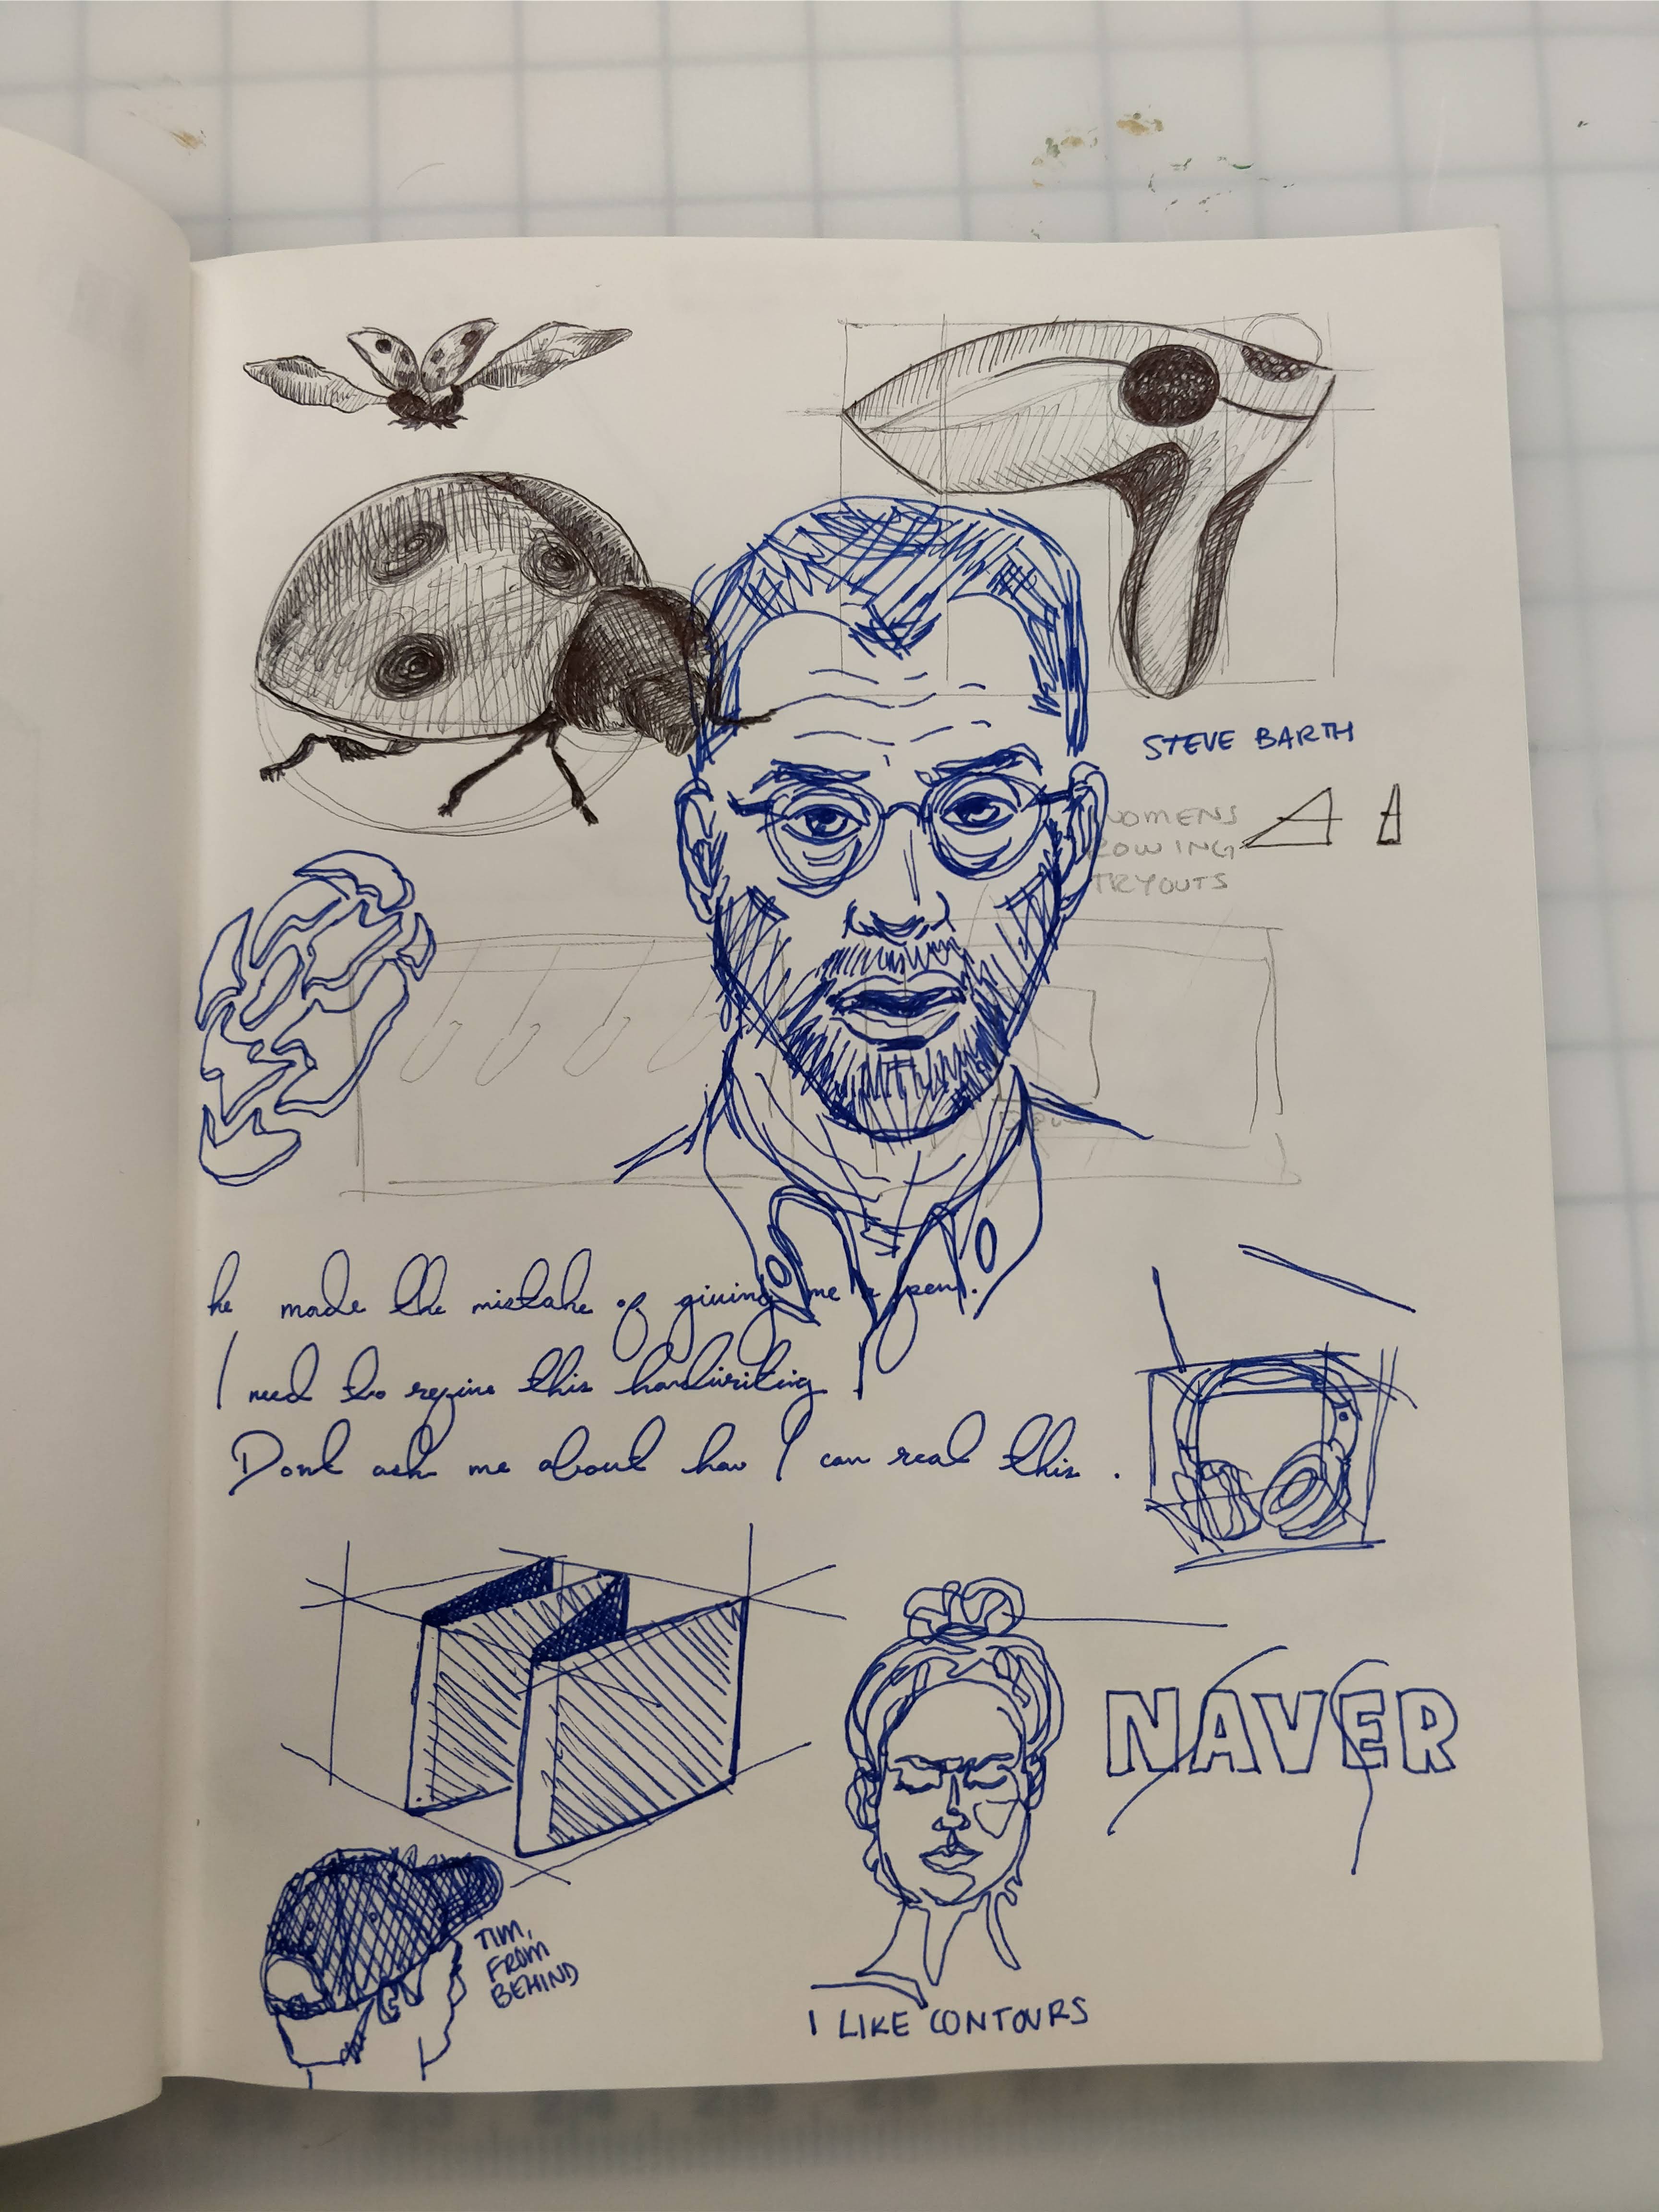 STEVE BARTH
WOMENS
ROWING
TRYOUTS
he made the mistake of giving me a pen.
I need to refine this handwriting
Dont ask me about how I can read this.
NAVER
TIM,
FROM
BEHIND
I LIKE CONTOURS